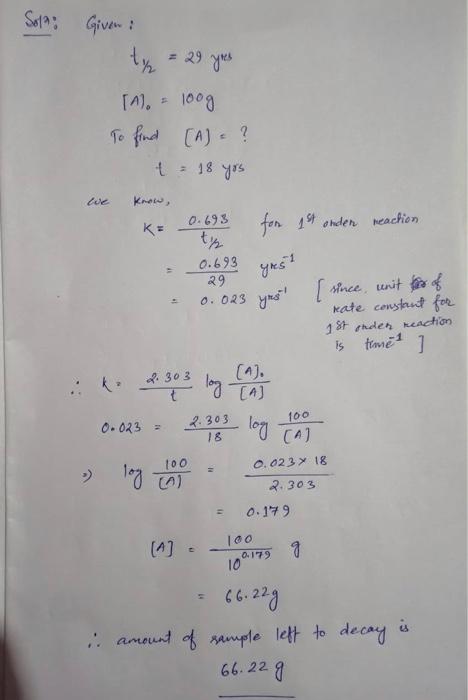 Sol^n: Given:
t_{1/2} = 29 yrs
[A]₀ = 100g
To find [A] = ?
t = 18 yrs
we know,
K = 0.693 / t_{1/2} for 1st order reaction
= 0.693 / 29 yrs⁻¹
= 0.023 yrs⁻¹ [since, unit of
rate constant for
1st order reaction
is time⁻¹]
∴ k = 2.303 / t log [A]₀ / [A]
0.023 = 2.303 / 18 log 100 / [A]
⇒) log 100 / [A] = 0.023 × 18 / 2.303
= 0.179
[A] = 100 / 10^{0.179} g
= 66.22g
∴ amount of sample left to decay is
66.22 g